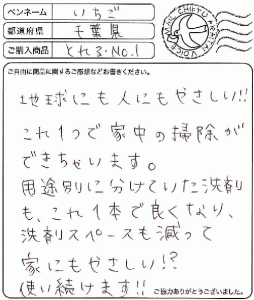 ペンネーム いちご
都道府県 千葉県
ご購入商品 とれる・No.1
ご自由に商品に関するご感想などお書きください。
地球にも人にもやさしい!!
これ1つで家中の掃除が
できちゃいます。
用途別に分けていた洗剤
も、これ1本で良くなり、
洗剤スペースも減って
家にもやさしい!?
使い続けます!!
ご協力ありがとうございました。